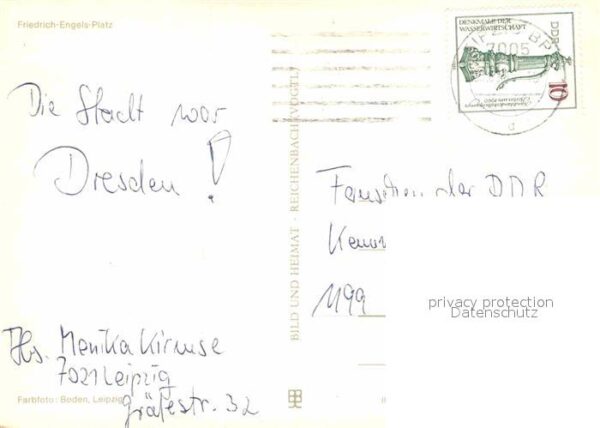 Friedrich-Engels-Platz
Die Stadt war
Dresden!
Monika Kirmse
7021 Leipzig
Gräfestr. 32
Farbfoto: Boden, Leipzig
BILD UND HEIMAT · REICHENBACH (VOGTL)
DENKMALE DER
WASSERWIRTSCHAFT
DDR
10
7005
d
Fernsehen der DDR
1199
privacy protection
Datenschutz